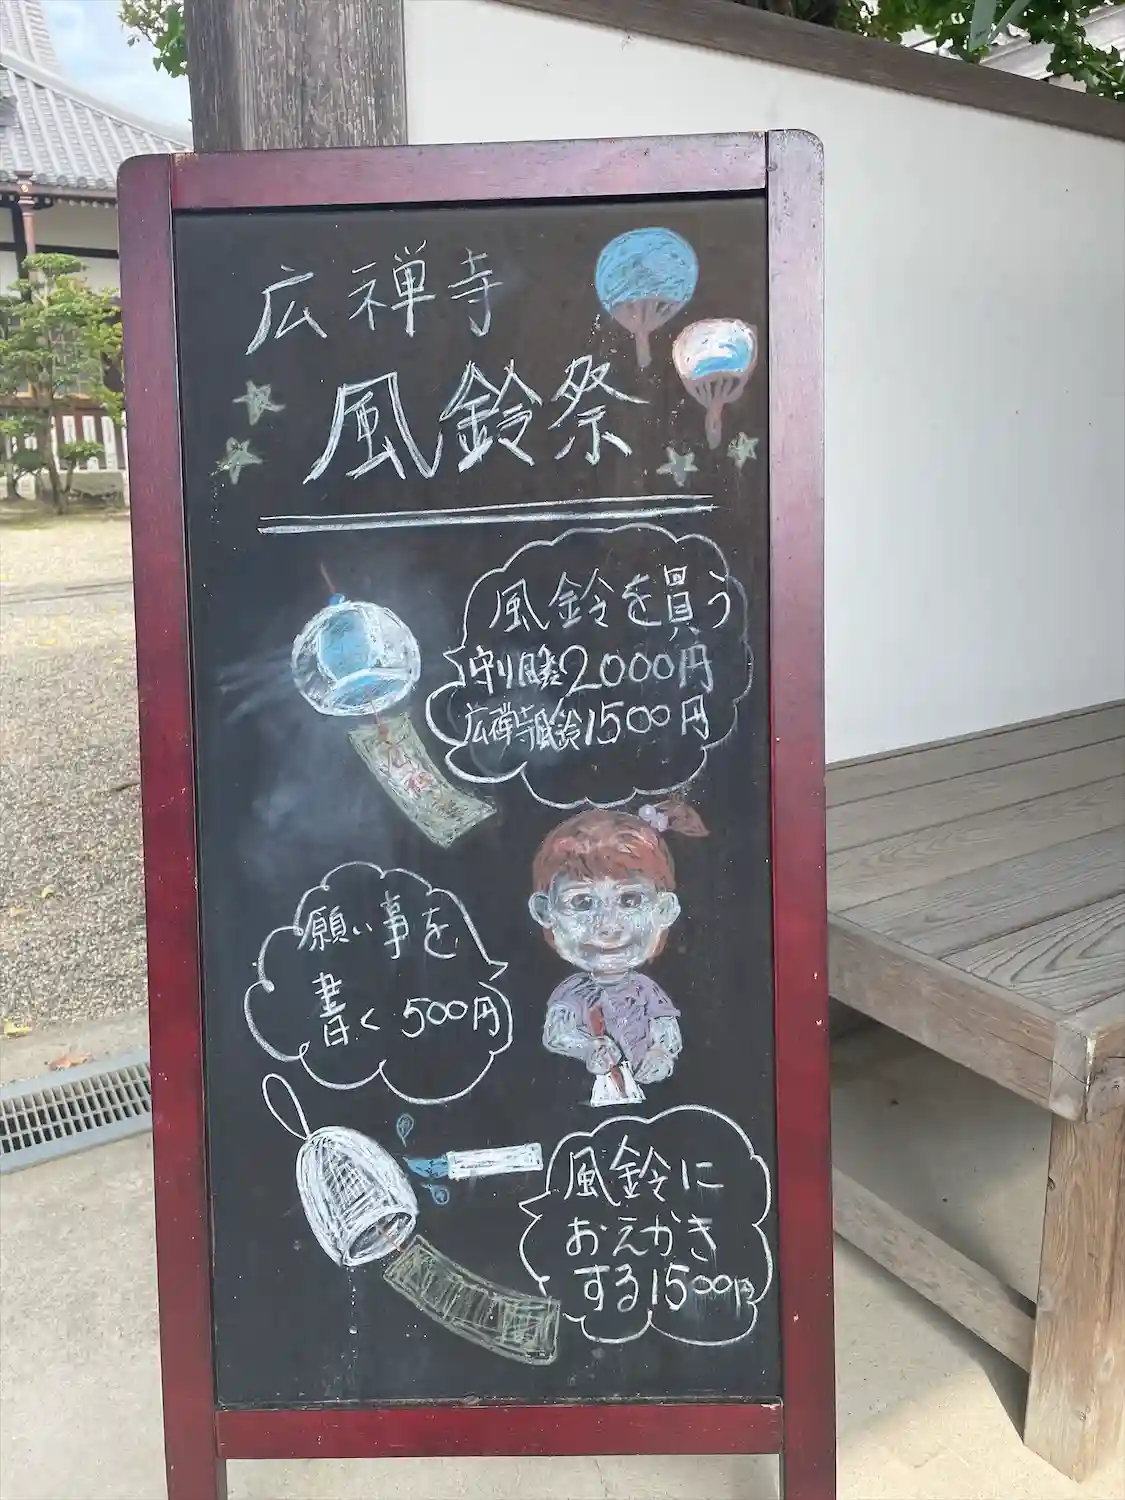 広禅寺
風鈴祭
風鈴を買う
守り 2000円
広禅寺風鈴1500円
願い事を
書く 500円
風鈴に
おえかき
する1500円